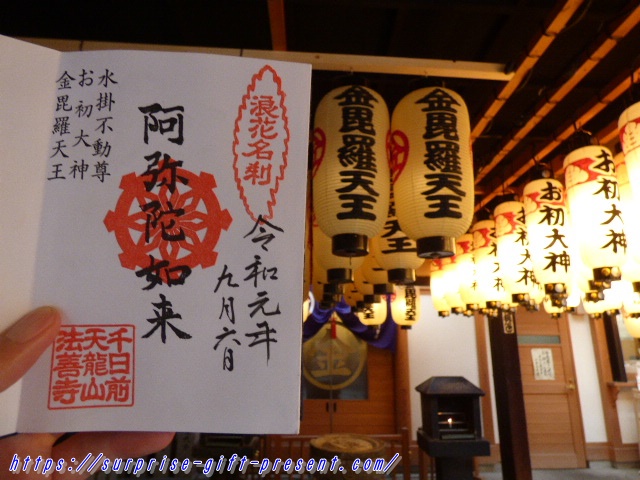 浪花名刹
令和元年
九月六日
阿弥陀如来
水掛不動尊
お初大神
金毘羅天王
千日前
天龍山
法善寺
金毘羅天王
金毘羅天王
お初大神
お初大神
お初大神
https://surprise-gift-present.com/